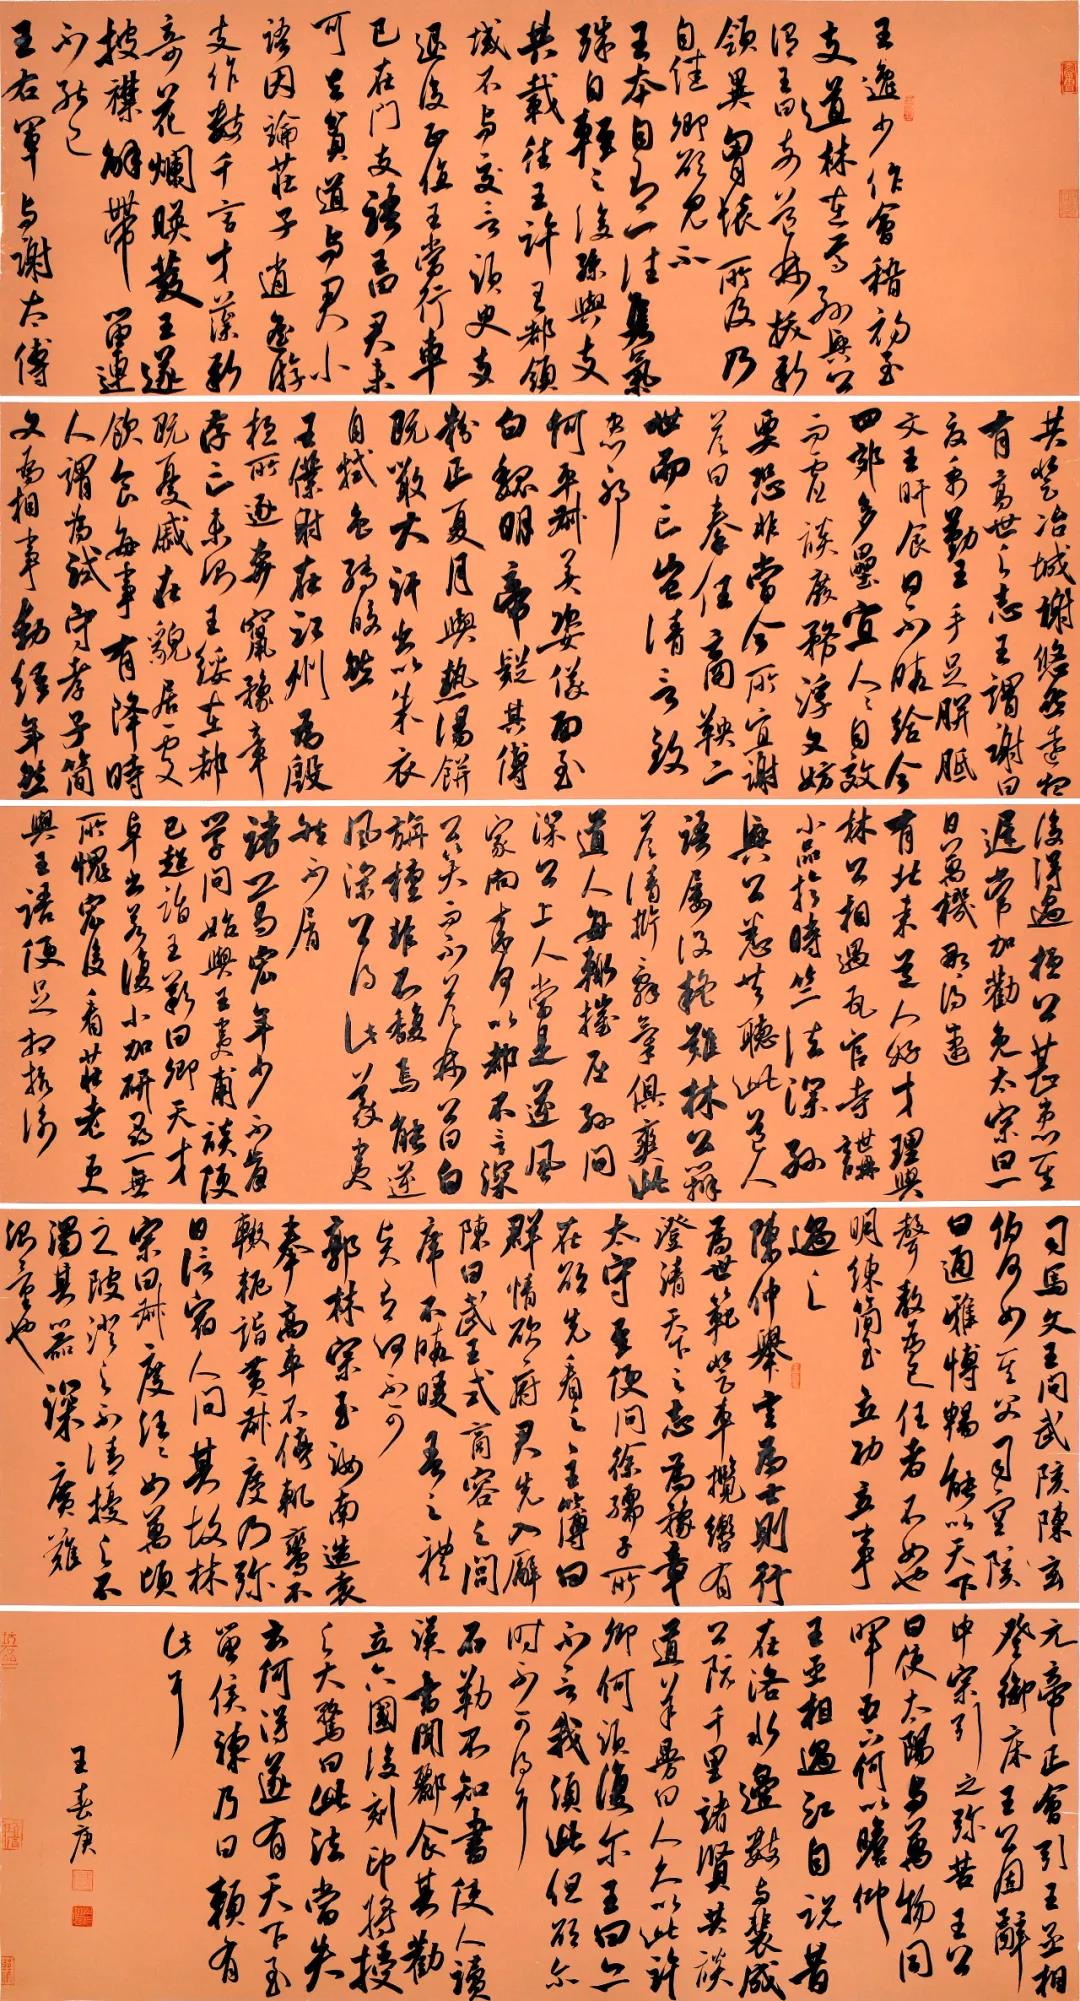 王逸少作會稽初至
支道林在焉孫興公
謂王曰支道林拔新
領異胸懷所及乃
自佳卿欲見不
王本自有一往雋氣
殊自輕之後孫與支
共載往王許王都領
域不與交言須臾支
退後正值王當行車
已在門支語王曰君未
可去貧道與君小
語因論莊子逍遙游
支作數千言才藻新
奇花爛映發王遂
披襟解帶留連
不能已
王右軍與謝太傅
共登冶城謝悠然遠想
有高世之志王謂謝曰
夏禹勤王手足胼胝
文王旰食日不暇給今
四郊多壘宜人人自效
而虛談廢務浮文妨
要恐非當今所宜謝
答曰秦任商鞅二
世而亡豈清言致
患邪
何平叔美姿儀面至
白魏明帝疑其傅
粉正夏月與熱湯餅
既噉大汗出以朱衣
自拭色轉皎然
王僕射在江州為殷
桓所逐奔竄豫章
存亡未測王綏在都
既憂戚在貌居處
飲食每事有降時
人謂為試守孝子簡
文為相事動經年然
後得過桓公甚患其
遲常加勸免太宗曰一
日萬機那得速
有北來道人好才理與
林公相遇瓦官寺講
小品於時竺法深孫
興公悉共聽此道人
語屢設疑難林公辯
答清晰辭氣俱爽此
道人每輒摧屈孫問
深公上人當是逆風
家向來何以都不言深
公笑而不答林公曰白
旃檀非不馥焉能逆
風深公得此義夷
然不屑
諸葛宏年少不肯
學問始與王夷甫談便
已超詣王歎曰卿天才
卓出若復小加研尋一無
所愧宏後看莊老更
與王語便足相抗衡
司馬文王問武陔陳玄
伯何如其父司空陔
曰通雅博暢能以天下
聲教為己任者不如也
明練簡至立功立事
過之
陳仲舉言為士則行
為世範登車攬轡有
澄清天下之志為豫章
太守至便問徐孺子所
在欲先看之主簿曰
群情欲府君先入廨
陳曰武王式商容之閭
席不暇暖吾之禮
賢有何不可
郭林宗至汝南造袁
奉高車不停軌鸞不
輟軛詣黃叔度乃彌
日信宿人問其故林
宗曰叔度汪汪如萬頃
之陂澄之不清擾之不
濁其器深廣難
測量也
元帝正會引王丞相
登御床王公固辭
中宗引之彌苦王公
曰使太陽與萬物同
暉臣下何以瞻仰
王丞相過江自說昔
在洛水邊數與裴成
公阮千里諸賢共談
道羊曼曰人久以此許
卿何須復爾王曰亦
不言我須此但欲爾
時不可得耳
石勒不知書使人讀
漢書聞酈食其勸
立六國後刻印將授
之大驚曰此法當失
云何得遂有天下至
留侯諫乃曰賴有
此耳
王春庚